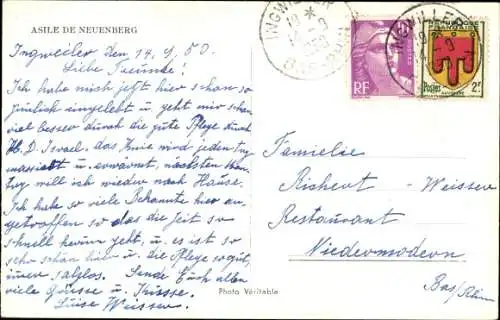 ASILE DE NEUENBERG
Ingweiler den 14.9.50.
Liebe Freunde!
Ich habe mich jetzt hier schon so
zimlich eingelebt u. geht mir schon
viel besser durch die gute Pflege durch
H. D. Israel. das Knie wird jeden tag
massiert u. erwärmt, nächsten
tag will ich wieder nach Hause.
Ich habe so viele Bekannte hier an
getroffen so das die Zeit so
schnell herum geht, u. es ist so
sehr schön hier u. die Pflege so gut,
immer salzlos. Sende Euch allen
viele Grüsse u. Küsse.
Luise Weisser.
Photo Véritable
INGWILLER
19 *
BAS-RHIN
RF
POSTES
INGWILLER
RÉPUBLIQUE FRANÇAISE
Postes 2F
Familie
Richert - Weisser
Restaurant
Niedermodern
Bas/Rhin